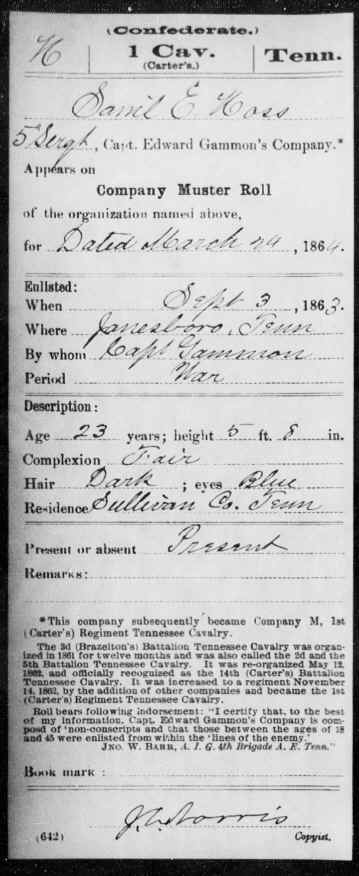 (Confederate.)
H 1 Cav. Tenn.
(Carter's.)
Saml E Hoss
5 Sergt, Capt. Edward Gammon's Company.*
Appears on
Company Muster Roll
of the organization named above,
for Dated March 24, 1864.
Enlisted:
When Sept 3, 1863.
Where Jonesboro, Tenn
By whom Capt Gammon
Period War
Description:
Age 23 years; height 5 ft. 8 in.
Complexion Fair
Hair Dark ; eyes Blue
Residence Sullivan Co. Tenn
Present or absent Present
Remarks:
*This company subsequently became Company M, 1st
(Carter's) Regiment Tennessee Cavalry.
The 3d (Brazelton's) Battalion Tennessee Cavalry was organ-
ized in 1861 for twelve months and was also called the 2d and the
5th Battalion Tennessee Cavalry. It was re-organized May 12,
1862, and officially recognized as the 14th (Carter's) Battalion
Tennessee Cavalry. It was increased to a regiment November
14, 1862, by the addition of other companies and became the 1st
(Carter's) Regiment Tennessee Cavalry.
Roll bears following indorsement: "I certify that, to the best
of my information, Capt. Edward Gammon's Company is com-
posed of 'non-conscripts and that those between the ages of 18
and 45 were enlisted from within the 'lines of the enemy.'
JNO. W. BARR, A. I. G. 4th Brigade A. E. Tenn."
Book mark:
Norris
(642) Copyist.